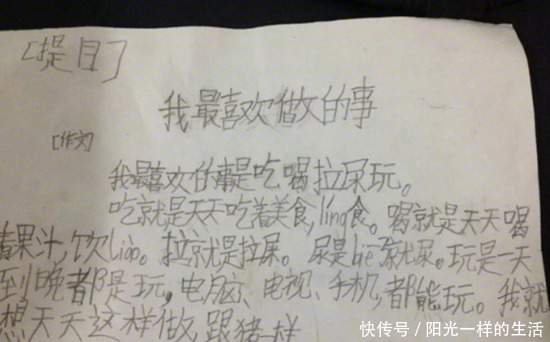 [提目]
我最喜欢做的事
[作文]
我最喜欢的事是吃喝拉尿玩。
吃就是天天吃着美食,ling食。喝就是天天喝
着果汁,饮liao。拉就是拉屎。尿是biē就尿。玩是一天
到晚都是玩,电脑、电视、手机,都能玩。我就
想天天这样做,跟猪一样
快传号/阳光一样的生活